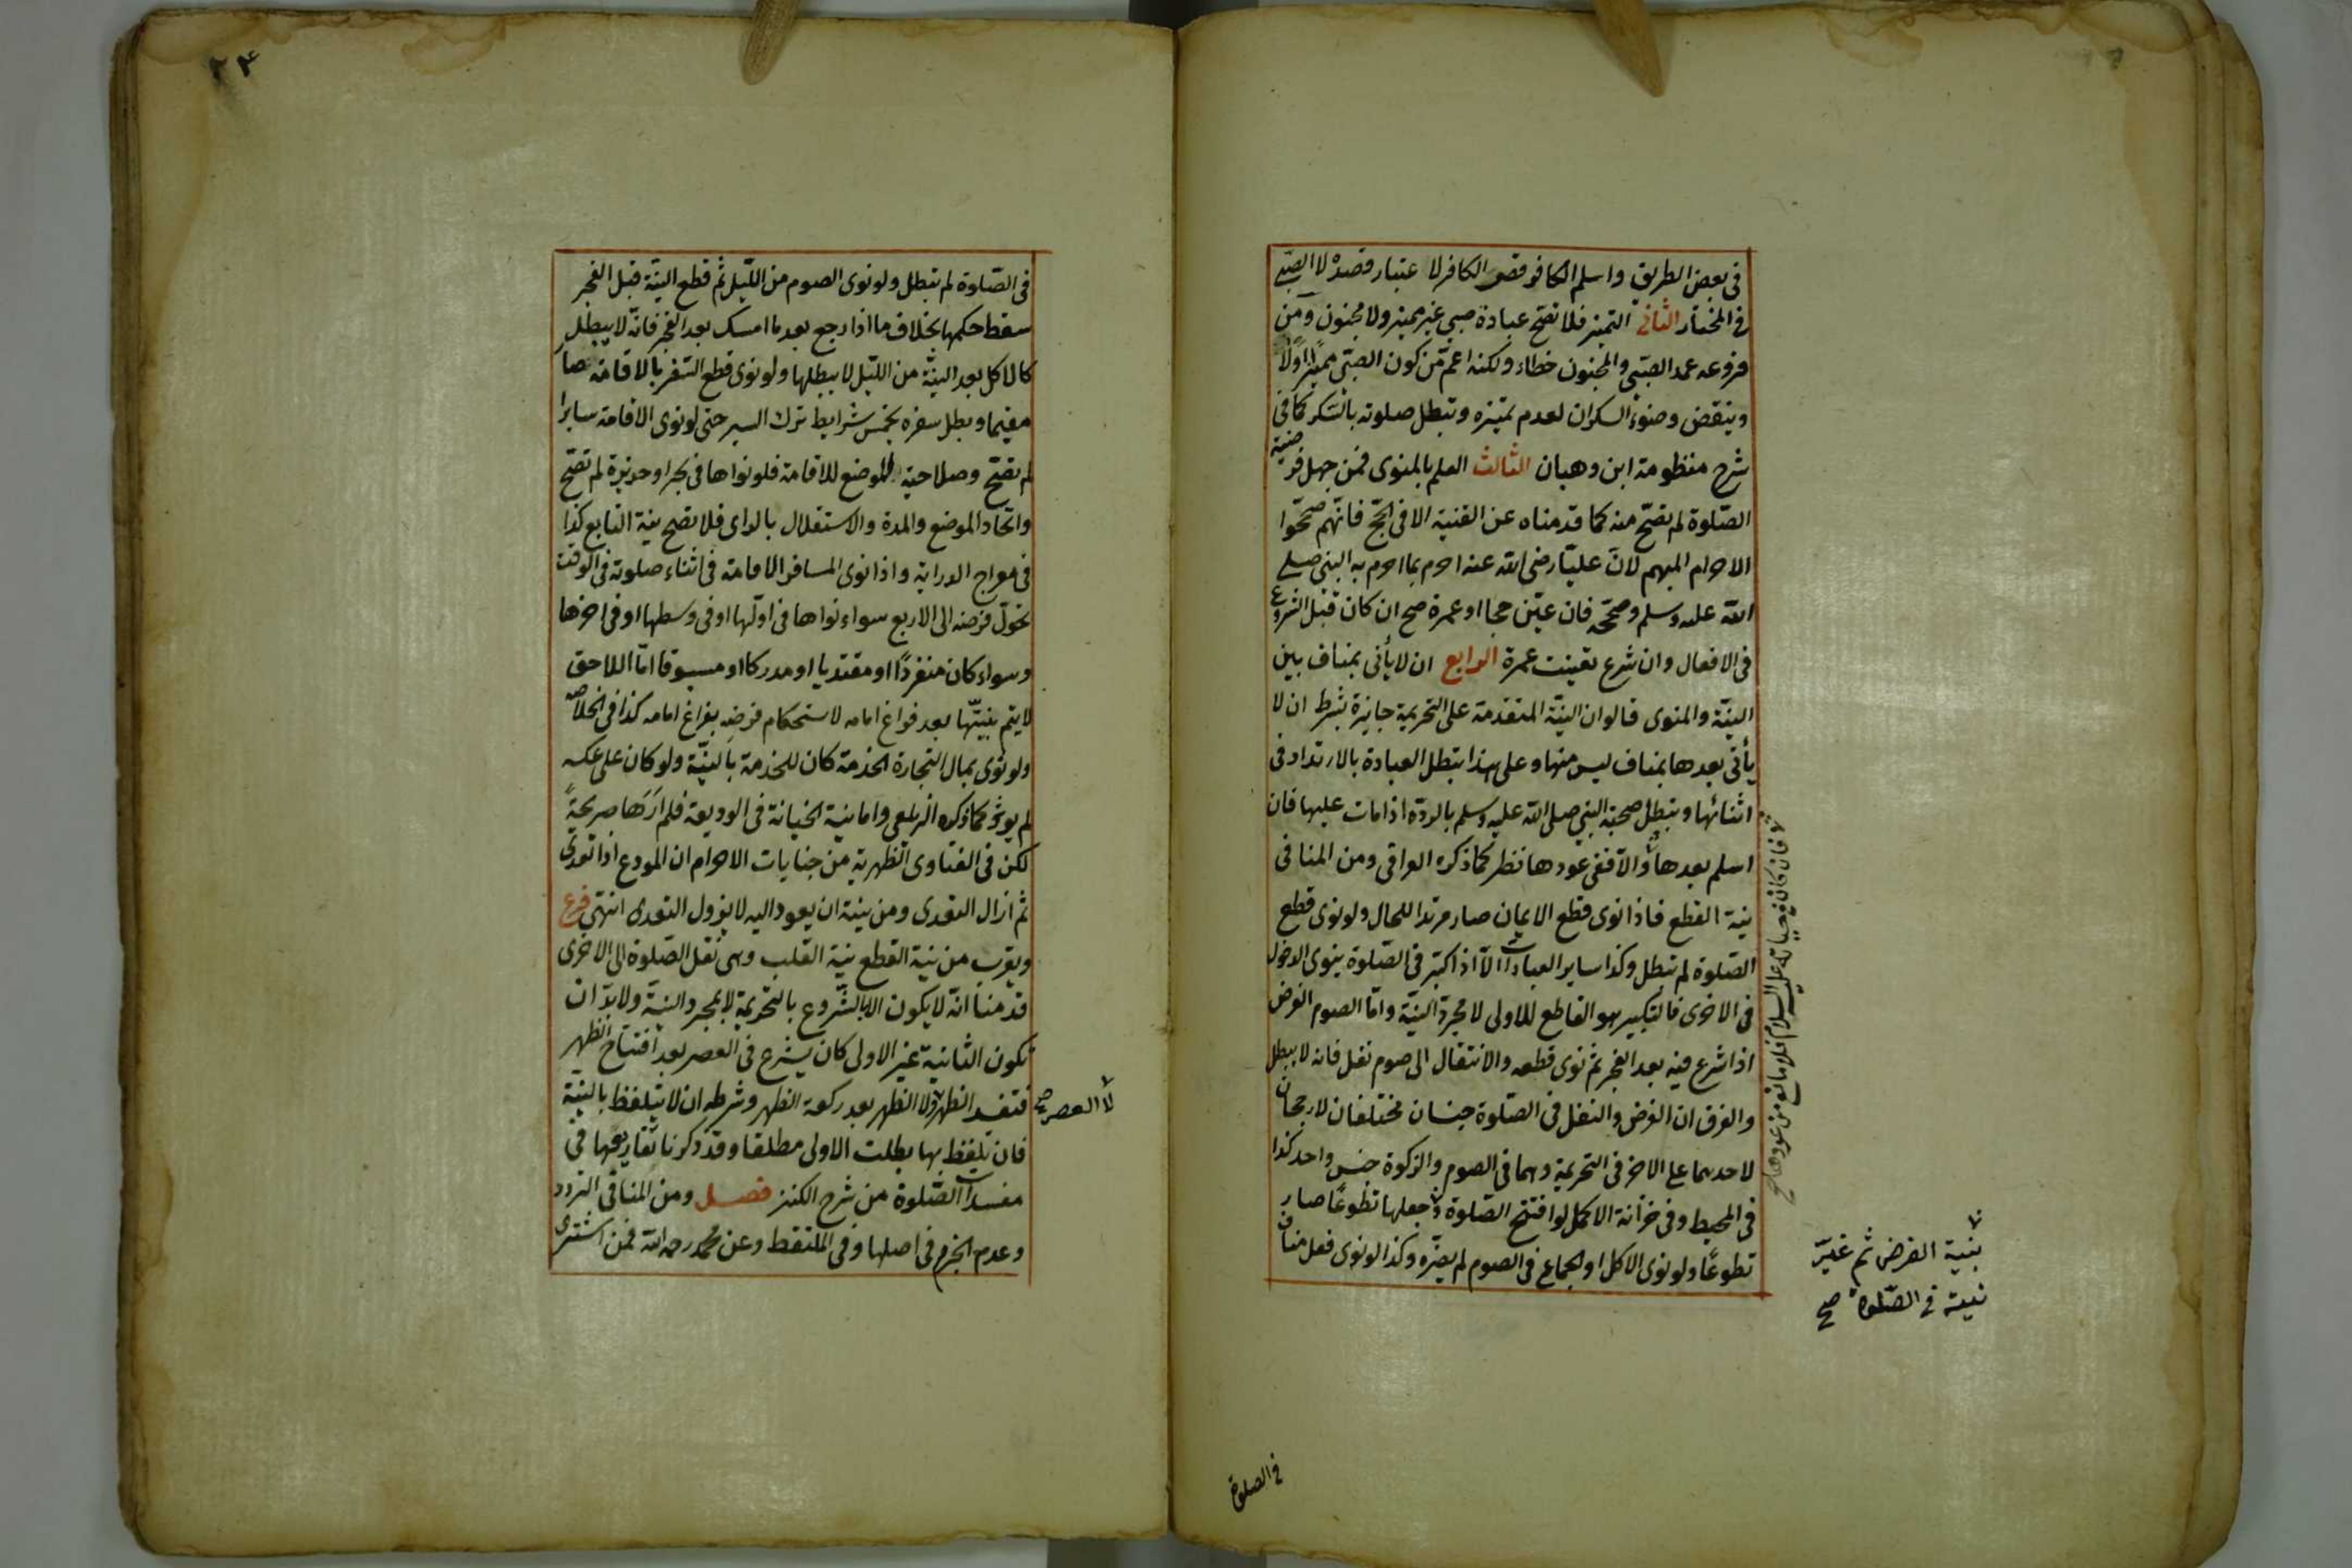 في بعض الطريق واسلم الكافر قصر الكافر لا عتبار قصده لا الصبي
في المختار الثاني التميز فلا تصح عبادة صبي غير مميز ولا مجنون ومن
فروعه عمد الصبي والمجنون خطاء ولكنه اعم من كون الصبي مميزا اولا
وينقض وضوء السكران لعدم تميزه وتبطل صلوته بالسكر كما في
شرح منظومة ابن وهبان الثالث العلم بالمنوى فمن جهل فرضية
الصلوة لم تصح منه كما قدمناه عن القنية الا في الحج فانهم صححوا
الاحرام المبهم لان عليا رضى الله عنه احرم بما احرم به النبي صلى
الله عليه وسلم وصححه فان عين حجا او عمرة صح ان كان قبل الشروع
في الافعال وان شرع تعينت عمرة الرابع ان لا يأتى بمناف بين
النية والمنوى قالوا ان النية المتقدمة على التحريمة جايزة بشرط ان لا
يأتى بعدها بمناف ليس منها وعلى هذا تبطل العبادة بالارتداد في
اثنائها وتبطل صحبة النبي صلى الله عليه وسلم بالردة اذا مات عليها فان
اسلم بعدها والا ففى عودها نظر كما ذكره العراقى ومن المنافى
نية القطع فاذا نوى قطع الايمان صار مرتدا للحال ولو نوى قطع
الصلوة لم تبطل وكذا ساير العبادات الا اذا كبر في الصلوة ينوى الدخول
في الاخرى فالتكبير هو القاطع للاولى لا مجرد النية واما الصوم الفرض
اذا شرع فيه بعد الفجر ثم نوى قطعه والانتقال الى صوم نفل فانه لا يبطل
والفرق ان الفرض والنفل في الصلوة جنسان مختلفان لا رجحان
لاحدهما على الاخر في التحريمة وهما في الصوم والزكوة جنس واحد كذا
في المحيط وفي خزانة الاكمل لو افتتح الصلوة وجعلها تطوعا صار
تطوعا ولو نوى الاكل او الجماع في الصوم لم يضره وكذا لو نوى فعل مناف
فان كان في حياته عليه السلام فلا مانع من عودها صح
بنية الفرض ثم غير
نيته في الصلوة صح
في الصلوة
٢٤
في الصلوة لم تبطل ولو نوى الصوم من الليل ثم قطع النية قبل الفجر
سقط حكمها بخلاف ما اذا رجع بعد ما امسك بعد الفجر فانه لا يبطل
كالاكل بعد النية من الليل لا يبطلها ولو نوى قطع السفر بالاقامة صار
مقيما وبطل سفره بخمس شرايط ترك السير حتى لو نوى الاقامة سايرا
لم تصح وصلاحية الموضع للاقامة فلو نواها في بحر او جزيرة لم تصح
واتحاد الموضع والمدة والاستقلال بالراى فلا تصح نية التابع كذا
في معراج الدراية واذا نوى المسافر الاقامة في اثناء صلوته في الوقت
تحول فرضه الى الاربع سواء نواها في اولها او في وسطها او في اخرها
وسواء كان منفردا او مقتديا او مدركا او مسبوقا اما اللاحق
لا يتم بنيتها بعد فراغ امامه لاستحكام فرضه بفراغ امامه كذا في الخلاصة
ولو نوى بمال التجارة الخدمة كان للخدمة بالنية ولو كان على عكسه
لم يوثر كما ذكره الزيلعى واما نية الخيانة في الوديعة فلم ارها صريحة
لكن في الفتاوى الظهرية من جنايات الاحرام ان المودع اذا تعدى
ثم ازال التعدى ومن نيته ان يعود اليه لا يزول التعدى انتهى فرع
ويقرب من نية القطع نية القلب وهى نقل الصلوة الى الاخرى
قدمنا انه لا يكون الا بالشروع بالتحريمة لا بمجرد النية ولا بد ان
تكون الثانية غير الاولى كان يشرع في العصر بعد افتتاح الظهر
فتفسد الظهر ولا الظهر بعد ركعة الظهر وشرطه ان لا يتلفظ بالنية
لا العصر صح
فان تلفظ بها بطلت الاولى مطلقا وقد ذكرنا تفاريعها في
مفسدات الصلوة من شرح الكنز فصل ومن المنافى التردد
وعدم الجزم في اصلها وفي الملتقط وعن محمد رحمه الله فمن اشترى